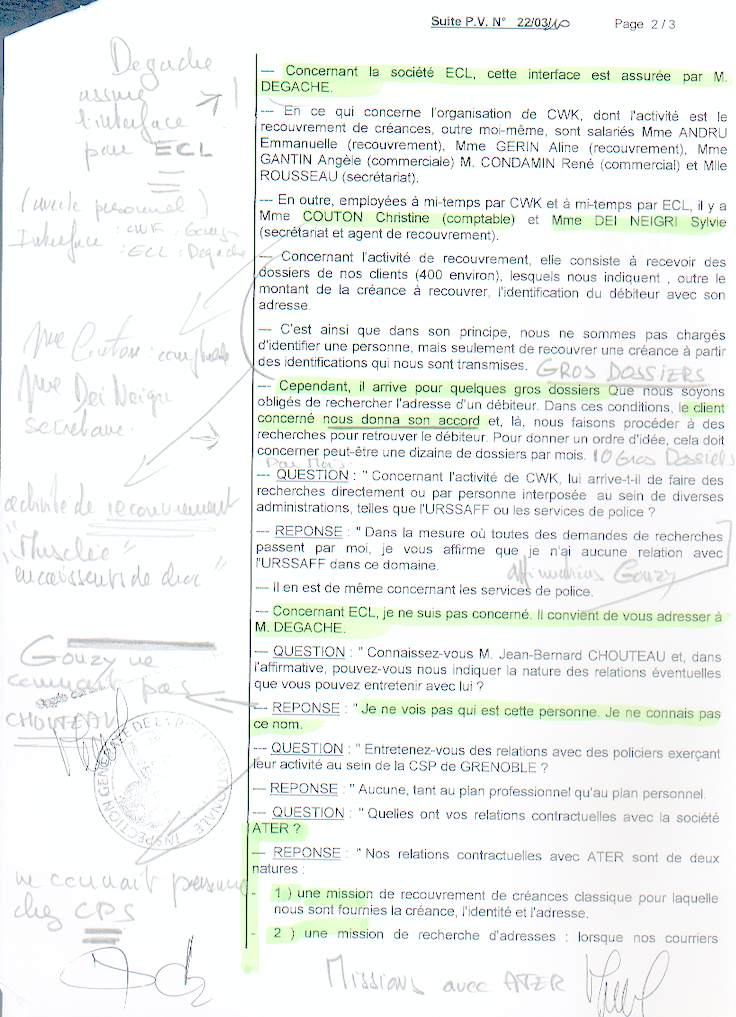 Suite P.V. N° 22/03/10 Page 2 / 3
Degache
assure
l'interface
par ECL
--- Concernant la société ECL, cette interface est assurée par M.
DEGACHE.
--- En ce qui concerne l'organisation de CWK, dont l'activité est le
recouvrement de créances, outre moi-même, sont salariés Mme ANDRU
Emmanuelle (recouvrement), Mme GERIN Aline (recouvrement), Mme
GANTIN Angèle (commerciale) M. CONDAMIN René (commercial) et Mlle
ROUSSEAU (secrétariat).
personnel)
Interface : CWK : Gouzy
: ECL : Degache
--- En outre, employées à mi-temps par CWK et à mi-temps par ECL, il y a
Mme COUTON Christine (comptable) et Mme DEI NEIGRI Sylvie
(secrétariat et agent de recouvrement).
--- Concernant l'activité de recouvrement, elle consiste à recevoir des
dossiers de nos clients (400 environ), lesquels nous indiquent , outre le
montant de la créance à recouvrer, l'identification du débiteur avec son
adresse.
Mme Couton : comptable
Mme Dei Neigri
secrétaire.
--- C'est ainsi que dans son principe, nous ne sommes pas chargés
d'identifier une personne, mais seulement de recouvrer une créance à partir
des identifications qui nous sont transmises.
GROS DOSSIERS
--- Cependant, il arrive pour quelques gros dossiers Que nous soyons
obligés de rechercher l'adresse d'un débiteur. Dans ces conditions, le client
concerné nous donna son accord et, là, nous faisons procéder à des
recherches pour retrouver le débiteur. Pour donner un ordre d'idée, cela doit
concerner peut-être une dizaine de dossiers par mois.
10 Gros Dossiers
par Mois
activité de recouvrement
"Musclée"
--- QUESTION : " Concernant l'activité de CWK, lui arrive-t-il de faire des
recherches directement ou par personne interposée au sein de diverses
administrations, telles que l'URSSAFF ou les services de police ?
--- REPONSE : " Dans la mesure où toutes des demandes de recherches
passent par moi, je vous affirme que je n'ai aucune relation avec
l'URSSAFF dans ce domaine.
Gouzy
--- il en est de même concernant les services de police.
--- Concernant ECL, je ne suis pas concerné. Il convient de vous adresser à
M. DEGACHE.
Gouzy ne
connait pas
CHOUTEAU
--- QUESTION : " Connaissez-vous M. Jean-Bernard CHOUTEAU et, dans
l'affirmative, pouvez-vous nous indiquer la nature des relations éventuelles
que vous pouvez entretenir avec lui ?
--- REPONSE : " Je ne vois pas qui est cette personne. Je ne connais pas
ce nom.
INSPECTION GENERALE DE LA POLICE NATIONALE
--- QUESTION : " Entretenez-vous des relations avec des policiers exerçant
leur activité au sein de la CSP de GRENOBLE ?
--- REPONSE : " Aucune, tant au plan professionnel qu'au plan personnel.
--- QUESTION : " Quelles ont vos relations contractuelles avec la société
ATER ?
--- REPONSE : " Nos relations contractuelles avec ATER sont de deux
natures :
ne connait personne
chez CPS
- 1 ) une mission de recouvrement de créances classique pour laquelle
nous sont fournies la créance, l'identité et l'adresse.
- 2 ) une mission de recherche d'adresses : lorsque nos courriers
Missions avec ATER